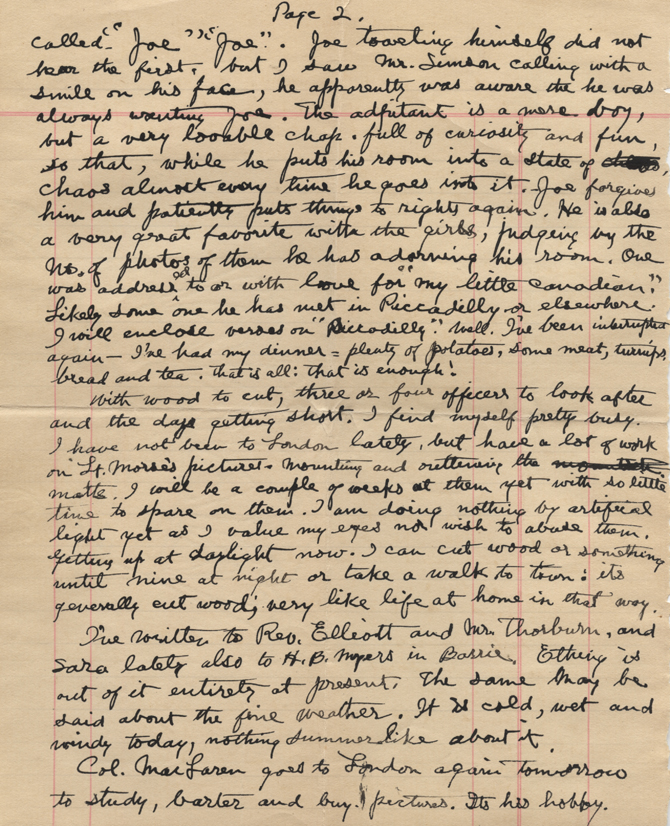 Page 2.
called "Joe" "Joe". Joe toweling himself did not
hear the first, but I saw Mr. Simson calling with a
smile on his face, he apparently was aware the he was
always wanting Joe. The adjutant is a mere boy,
but a very lovable chap. full of curiosity and fun,
so that, while he puts his room into a state of chaos,
chaos almost every time he goes into it. Joe forgives
him and patiently puts things to rights again. He is also
a very great favorite with the girls, judging by the
No. of photos of them he has adorning his room. One
was addressed to or with love for "my little canadian".
Likely some one he has met in Piccadilly or elsewhere.
I will enclose verses on "Piccadilly" well. I've been interrupted
again — I've had my dinner = plenty of potatoes, some meat, turnips,
bread and tea. that is all: that is enough!
With wood to cut, three or four officers to look after
and the days getting short. I find myself pretty busy.
I have not been to London lately, but have a lot of work
on Lt. Morse's pictures - mounting and outlining the
matte. I will be a couple of weeks at them yet with so little
time to spare on them. I am doing nothing by artificial
light yet as I value my eyes not wish to abuse them.
Getting up at daylight now. I can cut wood or something
until nine at night or take a walk to town: its
generally cut wood; very like life at home in that way.
I've written to Rev. Elliott and Mr. Thorburn, and
Sara lately also to H.B. Myers in Barrie. Ething is
out of it entirely at present. The same may be
said about the fine weather. It is cold, wet and
windy today, nothing summerlike about it.
Col. MacLaren goes to London again tomorrow
to study, barter and buy pictures. Its his hobby.